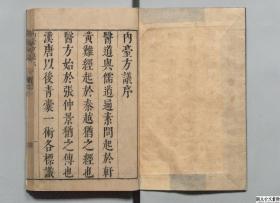 內臺方議序
醫道與儒道通素問起於軒
黃難經起於秦越猶之經也
醫方始於張仲景猶之傳也
漢唐以後青囊一術各標識